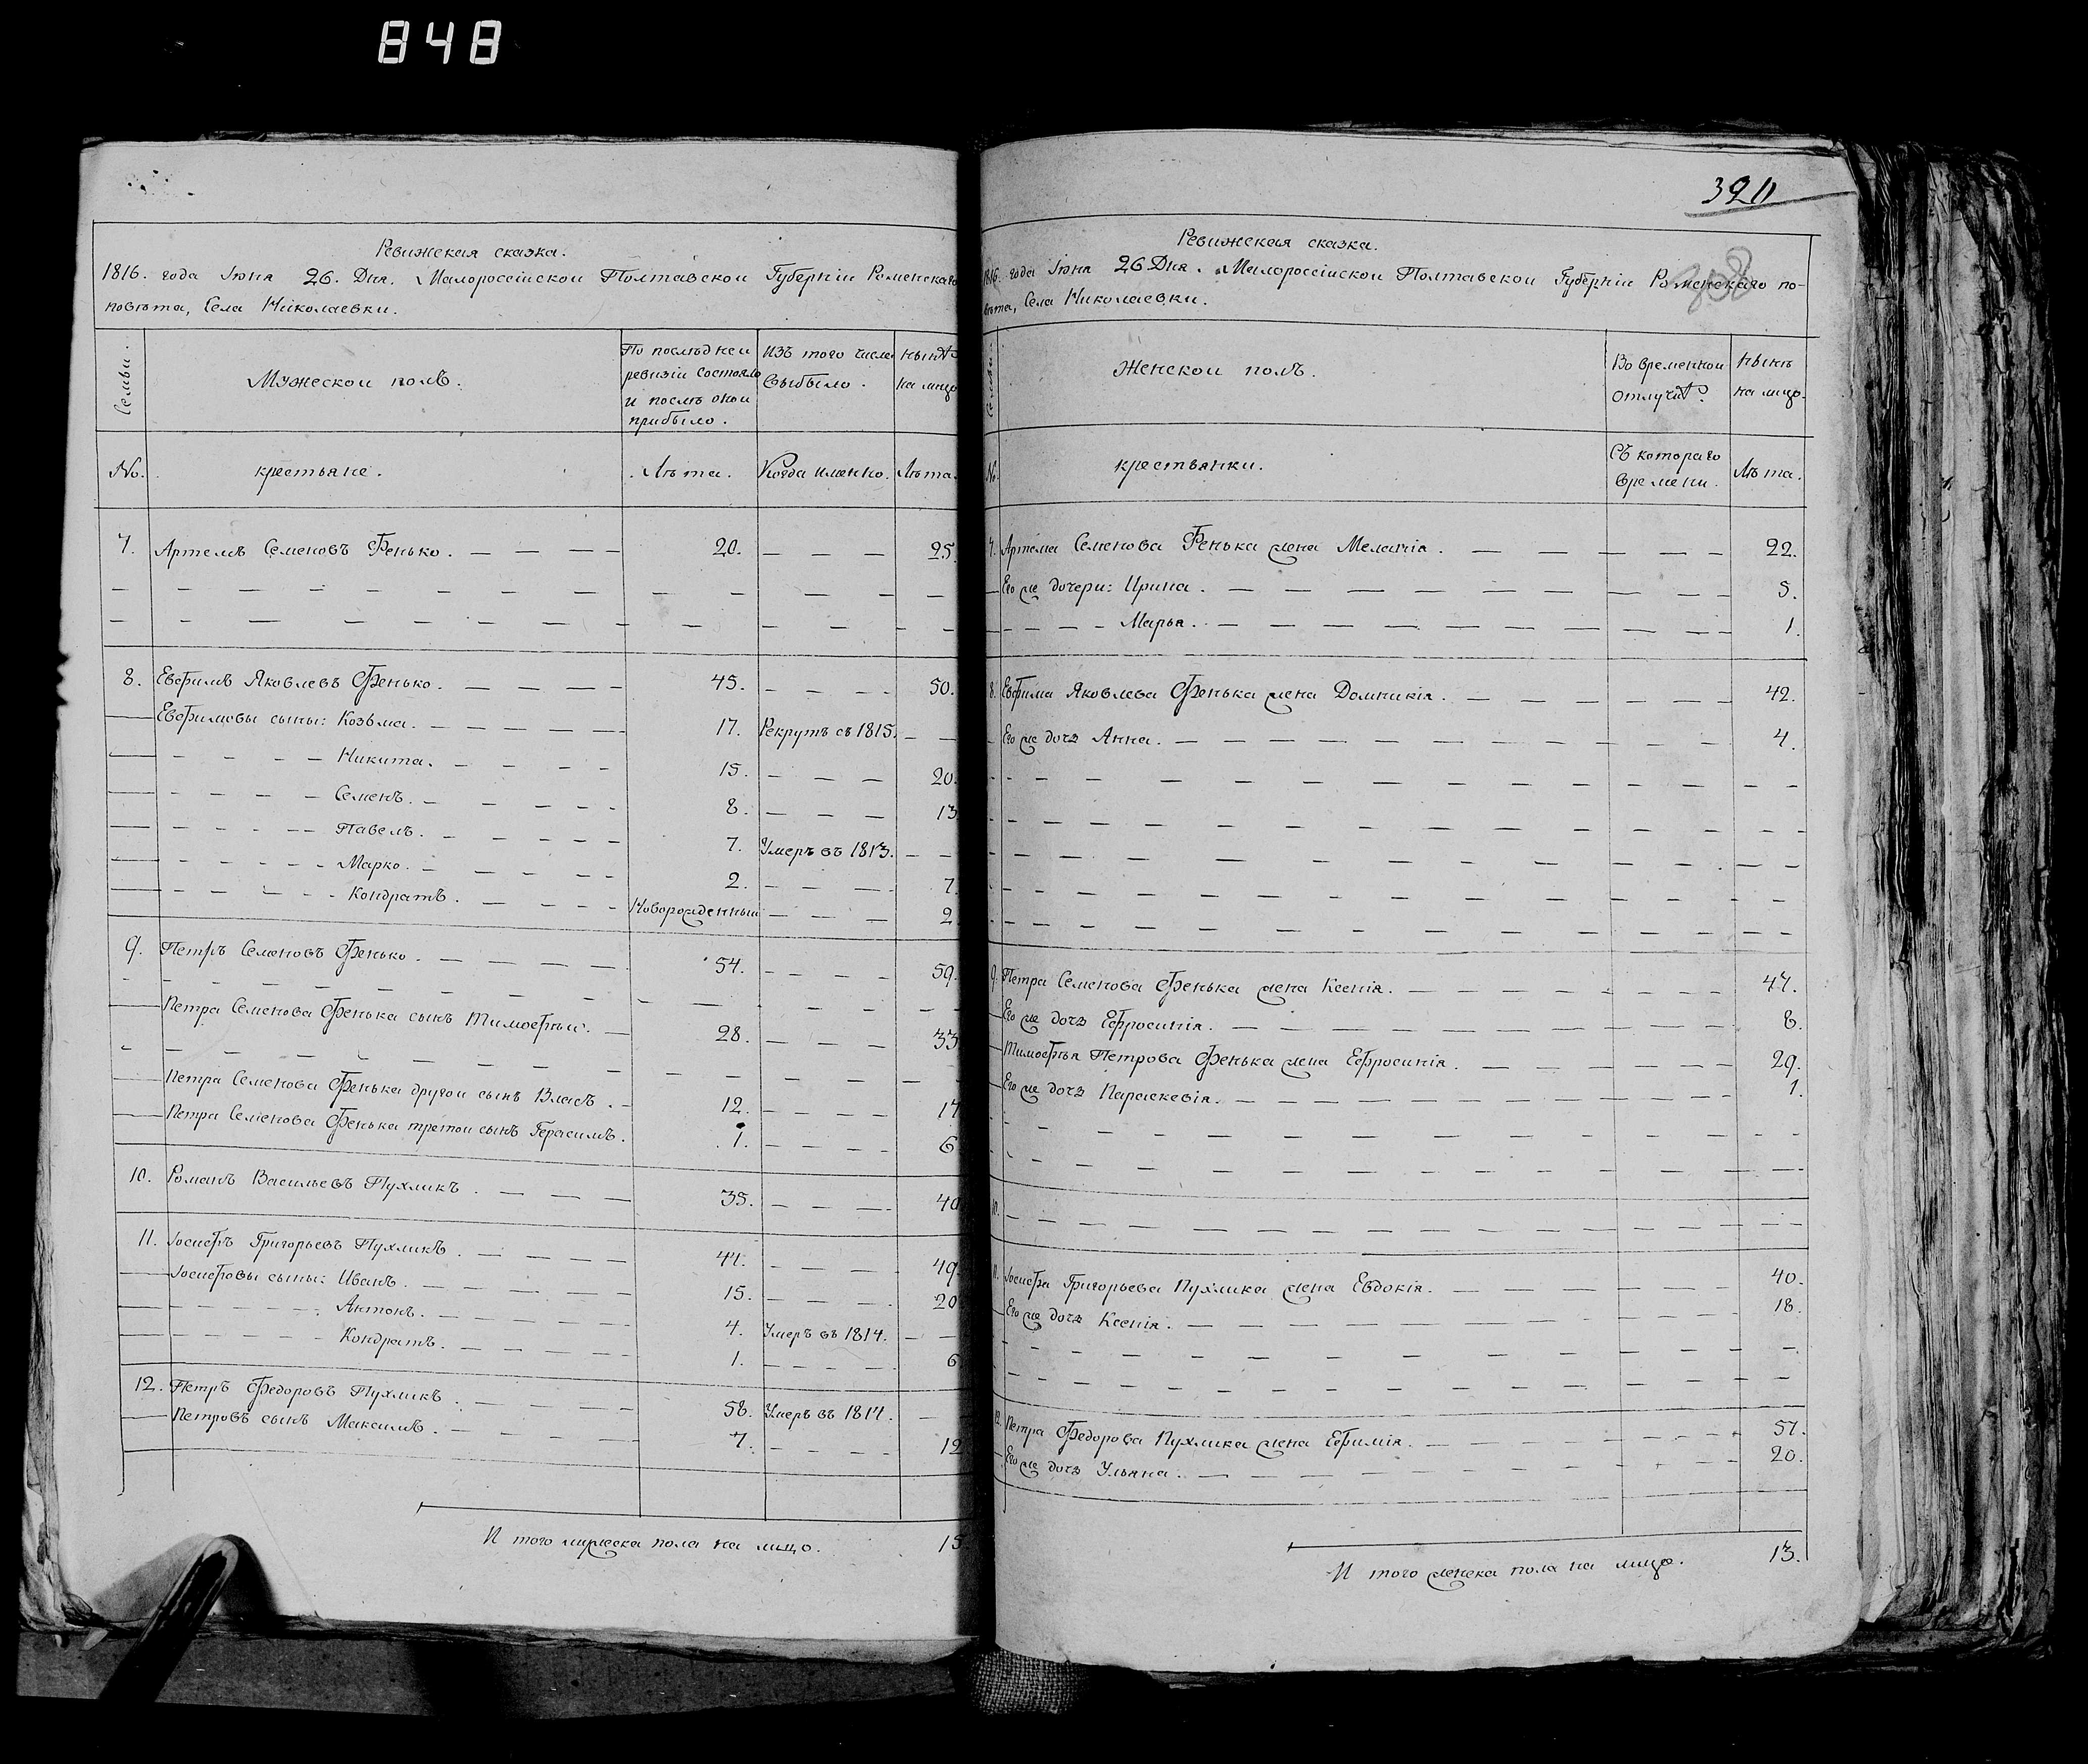 848
Ревижская сказка.
1816. года Июня 26. Дня. Малороссійской Полтавской Губерніи Роменскаго
повѣта, Села Николаевки.
Семьи.
Мужеской полъ.
По послѣдней
ревизіи состояло
и послѣ оной
прибыло.
Изъ того числа
выбыло.
Нынѣ
на лицо
No. крестьяне. Лѣта. Когда именно. Лѣта.
7. Артемъ Семеновъ Фенько. 20. 25.
8. Евфимъ Яковлевъ Фенько. 45. 50.
Евфимовы сыны: Козьма. 17. Рекрутъ съ 1815.
Никита. 15. 20.
Семенъ. 8. 13
Павелъ. 7. Умеръ въ 1813.
Марко. 2. 7.
Кондратъ. Новорожденный 2
9. Петръ Семеновъ Фенько. 54. 59.
Петра Семенова Фенька сынъ Тимофѣй. 28. 33
Петра Семенова Фенька другой сынъ Власъ. 12. 17
Петра Семенова Фенька третой сынъ Герасимъ. 1. 6
10. Романъ Васильевъ Пухликъ. 35. 40
11. Іосифъ Григорьевъ Пухликъ. 44. 49.
Іосифовы сыны: Иванъ. 15. 20
Антонъ. 4. Умеръ въ 1814.
Кондратъ. 1. 6
12. Петръ Федоровъ Пухликъ. 58. Умеръ въ 1814.
Петровъ сынъ Максимъ. 7. 12
И того мужеска пола на лицо. 15
3211
308
Ревижская сказка.
1816. года Июня 26 Дня. Малороссійской Полтавской Губерніи Роменскаго по-
вѣта, Села Николаевки.
Семьи.
Женской полъ.
Во временной
отлучкѣ.
Нынѣ
на лицо.
No крестьянки. Съ котораго
времени. Лѣта.
7. Артема Семенова Фенька жена Меланія. 22.
Его же дочери: Ирина. 5.
Марья. 1.
8. Евфима Яковлева Фенька жена Домникія. 42.
Его же дочь Анна. 4.
9. Петра Семенова Фенька жена Ксенія. 47.
Его же дочь Ефросинія. 8.
Тимофѣя Петрова Фенька жена Ефросинія. 29.
Его же дочь Параскевія. 1.
10.
11. Іосифа Григорьева Пухлика жена Евдокія. 40.
Его же дочь Ксенія. 18.
12. Петра Федорова Пухлика жена Ефимія. 57.
Его же дочь Ульяна. 20.
И того женска пола на лицо. 13.